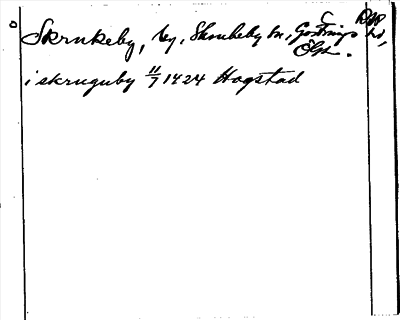 Skrukeby, by, Skrukeby sn, Göstrings hd,
Ögl.
i skruguby 11/7 1424 Hogstad